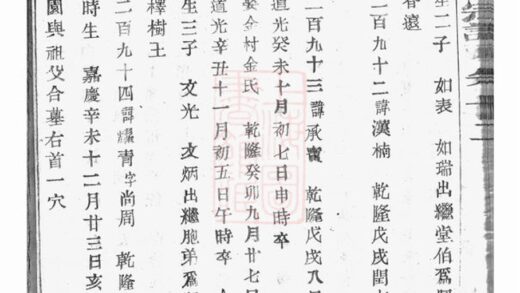 卷十二
生二子 如表 如瑞出繼堂伯爲
春遠
百九十二諱漢楠 乾隆戊戌閏
百九十三諱承 乾隆戊戌八月
道光癸未十月初七日申時卒
娶金村金氏 乾隆癸卯九月廿七日
道光辛丑十一月初五日午時卒
生三子 文光 文炳出繼胞弟爲
檡樹王
二百九十四諱耀青字尚周 乾隆
時生 嘉慶辛未十二月廿三日亥
園與祖父合墓右首一穴